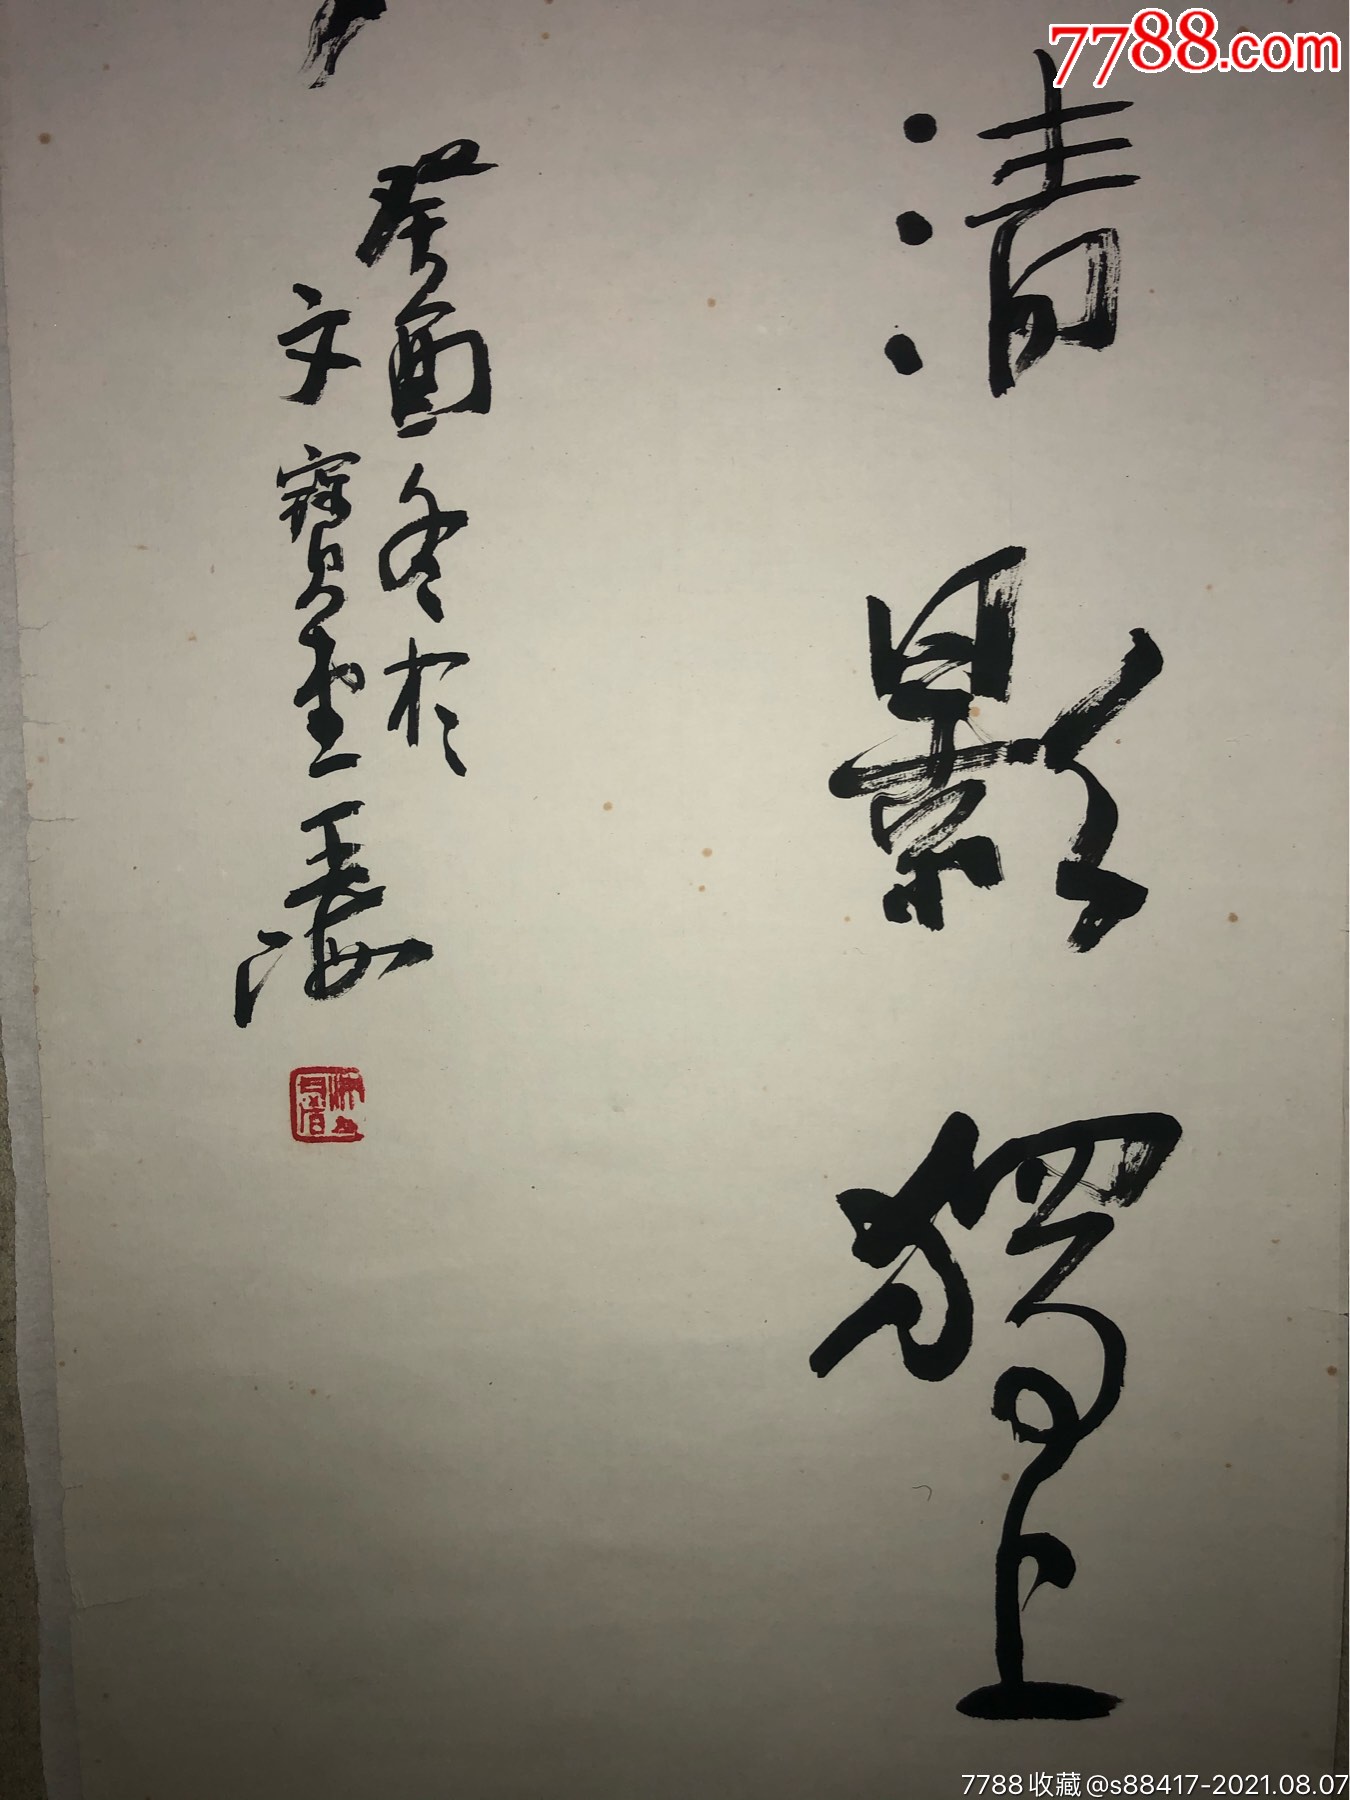 7788.com
清影獨上
癸酉冬於
文寶堂
7788收藏@s88417-2021.08.07